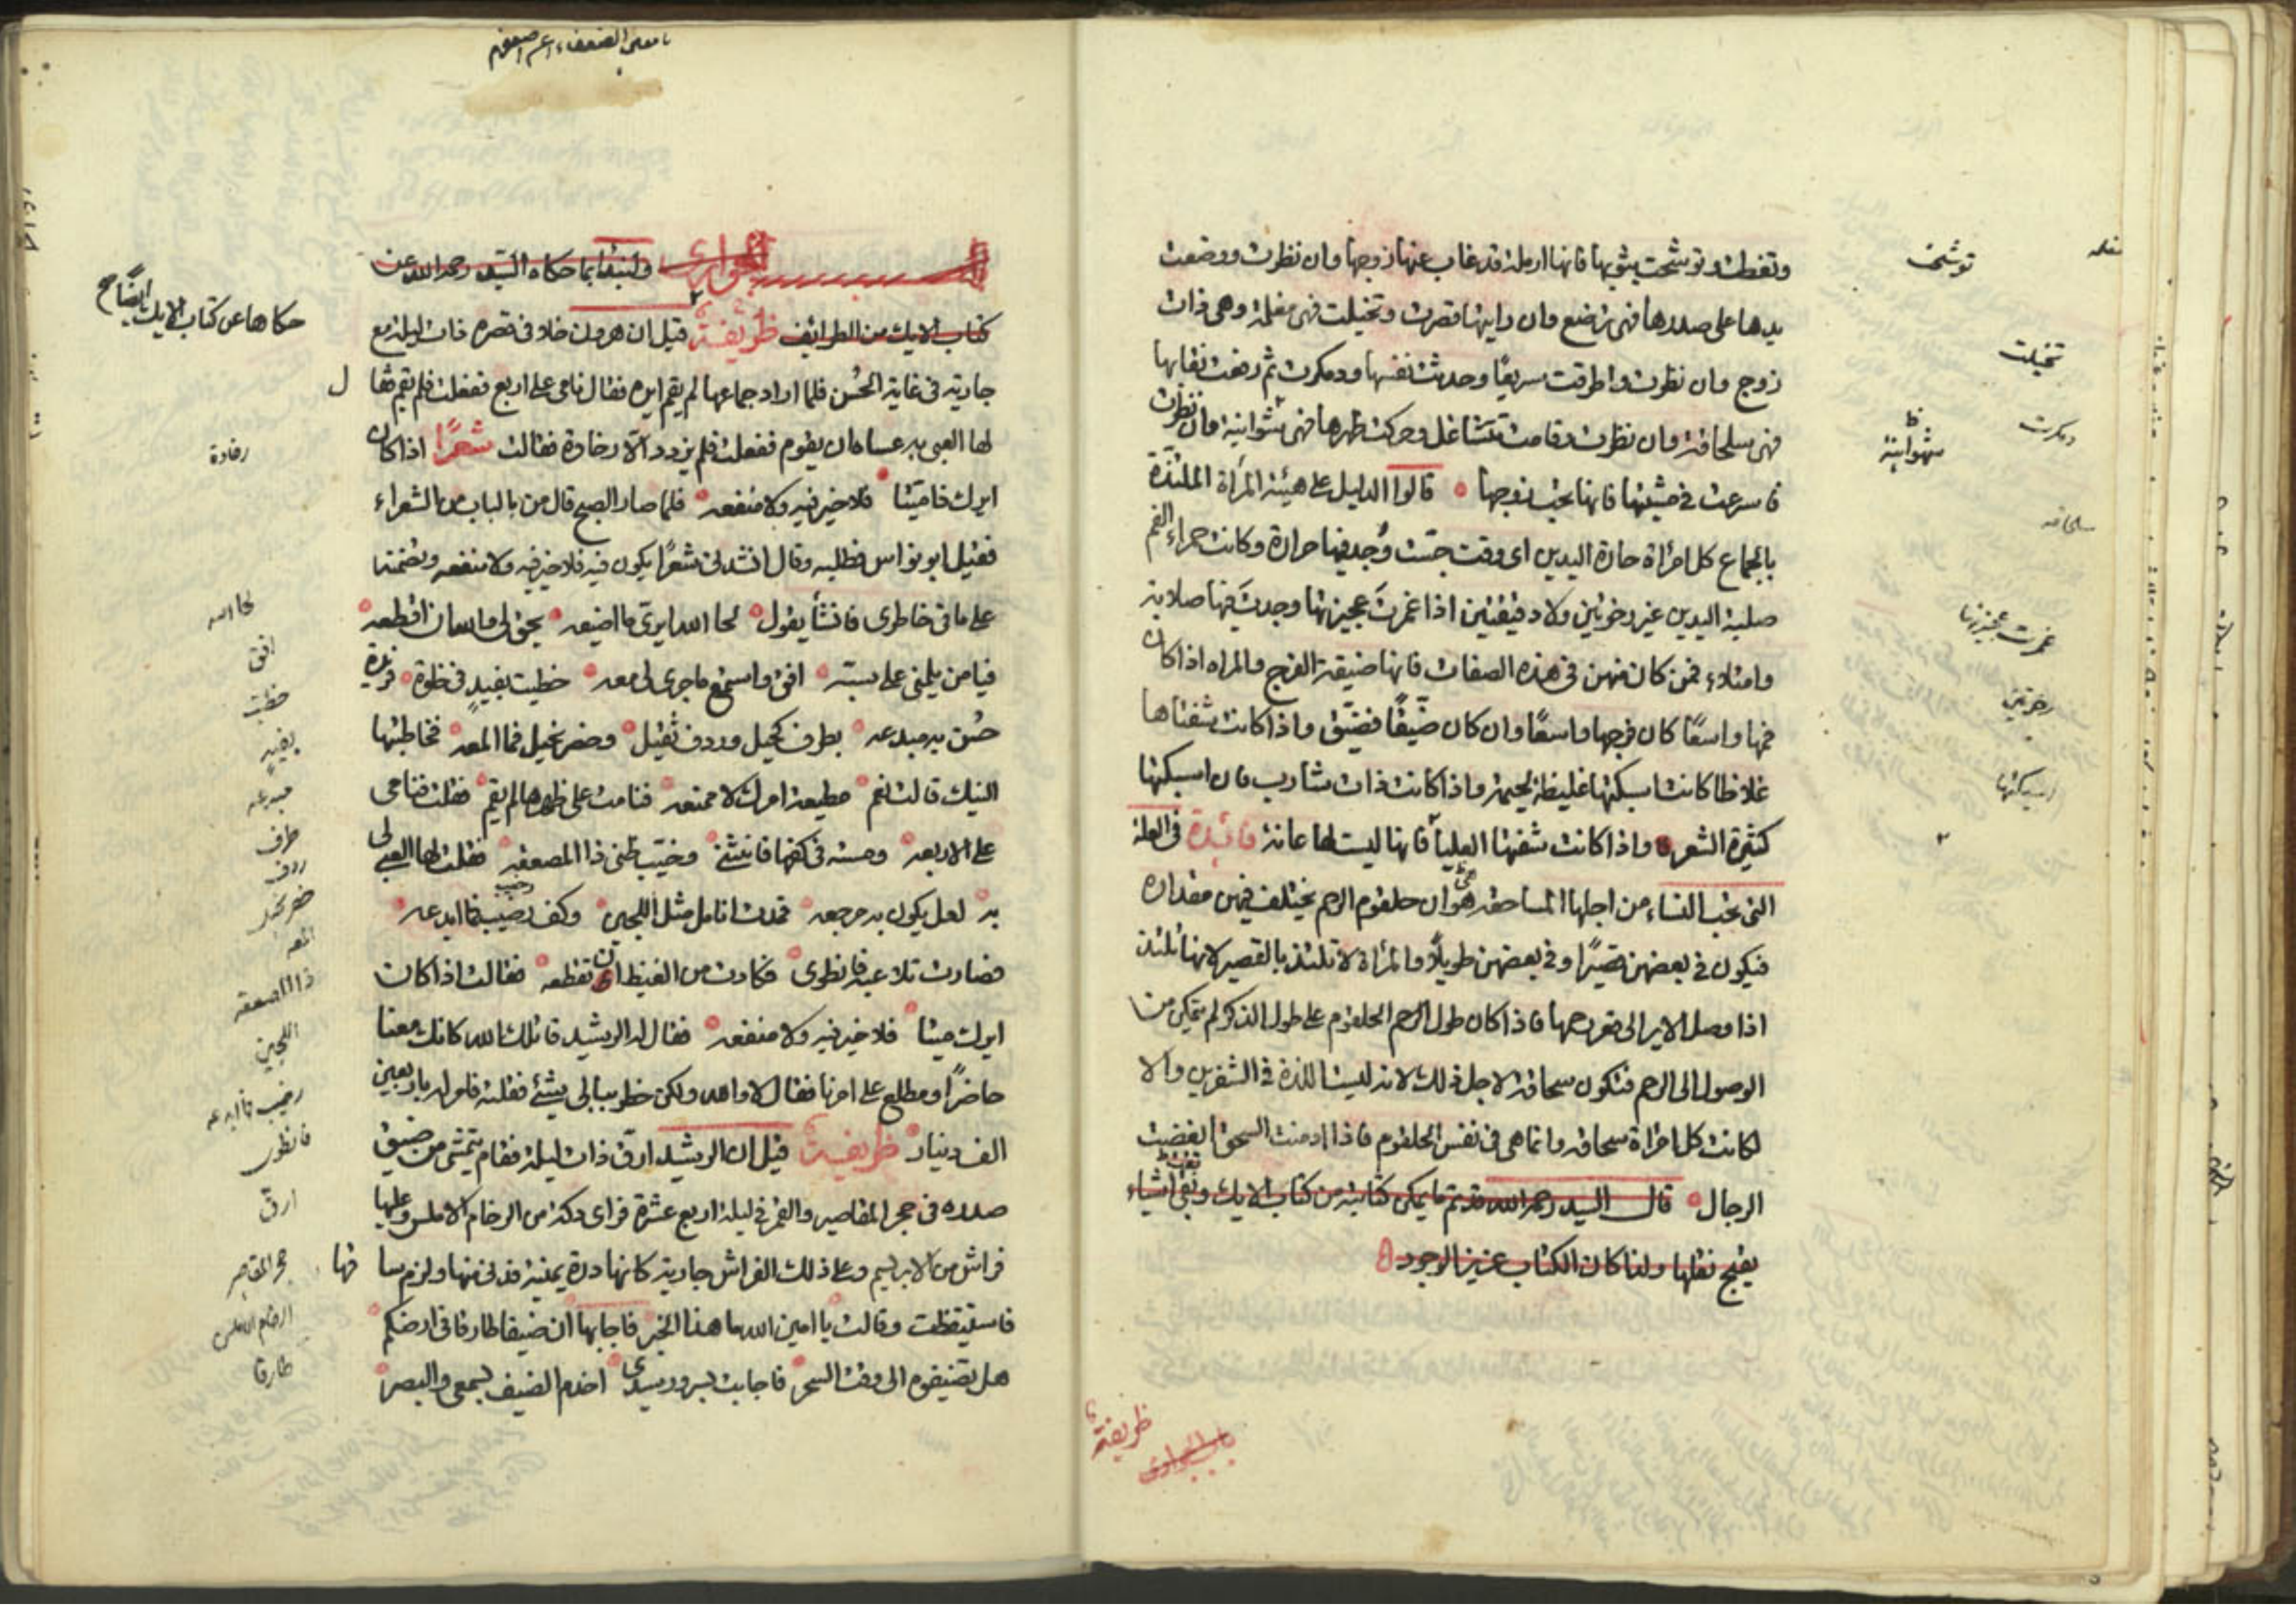 وتغطت وتوشحت بثوبها فانها ارملة قد غاب عنها زوجها وان نظرت ووضعت
يدها على صدرها فهى ترضع وان رايتها قصرت وتخيلت فهى مغلمة وهى ذات
زوج وان نظرت واطرقت سريعًا وحدثت نفسها ودمكرت ثم رفعت نقابها
فهى سلحافة وان نظرت وقامت تتشاغل وحركت ظهرها فهى شوانية وان نظرت
فاسرعت فى مشيتها فانها تحب زوجها قالوا الدليل على هيئة المرأة الملتذة
بالجماع كل امرأة حارة اليدين اى وقت جست وُجد فيها حرارة وكانت حمراء الفم
صلبة اليدين غير رخوتين ولا دقيقتين اذا غمزتَ عجيزتها وجدتَ فيها صلابة
وامتلاء فمن كان منهن فى هذه الصفات فانها ضيقة الفرج والمراه اذا كان
فمها واسعًا كان فرجها واسعًا وان كان ضيّقًا فضيّق واذا كانت شفتاها
غلاظا كانت اسكتها غليظة لحيمة واذا كانت ذات شارب فان اسكتها
كثيرة الشعر واذا كانت شفتها العليا فانها ليست لها عانة فائدة فى العلة
التى تحب النساء من اجلها المساحقة هو ان حلقوم الرحم يختلف فيهن مقداره
فيكون فى بعضهن قصيرًا وفى بعضهن طويلًا والمرأة لا تلتذ بالقصير لانها تلتذ
اذا وصل الاير الى قعر رحمها فاذا كان طول الرحم الحلقوم على طول الذكر لم يتمكن من
الوصول الى الرحم فتكون سحاقة لاجل ذلك لانه ليست اللذة فى الشفرين والا
لكانت كل امرأة سحاقة وانما هى فى نفس الحلقوم فاذا ادمنت السحق ابغضت
الرجال قال السيد رحمه الله قد تم ما يمكن كتابته من كتاب الايك وبقى اشياء
يقبح نقلها ولذا كان الكتاب عزيز الوجود
توشحت
تخيلت
دمكرت
شهوانية
سلحافه
غمزت عجيزتها
رخوتين
اسكتها
ظريفة
باب الجوارى
الجوارى ولنبدأ بما حكاه السيد رحمه الله عن
كتاب الايك من الطرائف ظريفة قيل ان هرون خلا فى قصره ذات ليلة مع
جارية فى غاية الحُسن فلما اراد جماعها لم يقم ايره فقال نامى على اربع ففعلت فلم يقم فقا
ل
لها العبى به عسا ان يقوم ففعلت فلم يزدد الّا رخاوة فقالت شعرًا اذا كان
ايرك ذا ميّتا فلا خير فيه ولا منفعه فلما صار الصبح قال من بالباب من الشعراء
فقيل ابو نواس فطلبه وقال انشدنى شعرًا يكون فيه فلا خير فيه ولا منفعه وتضمنه
على ما فى خاطرى فانشأ يقول لحا الله ايرىّ ما اضيعه يحق لى والله ان اقطعه
فيا من يلمنى على سبّه افق واستمع ما جرى لى معه حظيت بغيد فى خلوة فريدة
حُسن به مبدعه بطرف كحيل وردف ثقيل وخصر نحيل فما المعه فخاطبتها
النيك قالت نعم مطيعة امرك لا ممنعه فنامت على ظهرها لم يقم فقلت فنامى
على الاربعه ومسته فى كفها فانثنى وخيّب ظنى ذا المصعقه فقلت لها العبى لى
به لعل يكون به مرجعه فمدت انامل مثل اللجين وكف رطيب فما ابدعه
فصارت تلاعبه فانطوى فكادت من الغيظ ان تقطعه فقالت اذا كان
ايرك ميتا فلا خير فيه ولا منفعه فقال له الرشيد قاتلك الله كانك معنا
حاضرًا ومطلع على امرنا فقال لا والله ولكن خطر ببالى شيئ فقلته فامر له باربعين
الف دينار ظريفة قيل ان الرشيد ارق ذات ليلة فقام يتمشى من ضيق
صدره فى حجر المقاصير والقمر فى ليلة اربع عشرة فراى دكة من الرخام الاملس وعليها
فراش من الابريسم وعلى ذلك الفراش جارية كانها درة يمنية فدنى منها ولزم سا
قها
فاستيقظت وقالت يا امين الله ما هذا الخبر فاجابها ان ضيفا طارقا فى ارضكم
هل تضيفوه الى وقت السحر فاجابت بسرور سيدى اخدم الضيف بسمعى والبصر
حكاها عن كتاب الايك ايضًا صح
لحا الله
افق
حظيت
بغيد
مبدعه
طرف
ردف
المعه
ذا المصعقه
اللجين
رطيب فما ابدعه
فانطوى
ارق
حجر المقاصر
الرخام الاملس
طارقا